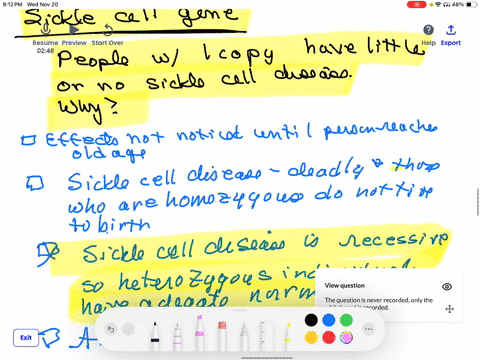 9:12 PM Wed Nov 20
48%
Sickle cell gene
Resume Preview Start Over
Help Export
02:48
People w/ 1 copy have little
or no sickle cell disease.
Why?
Effects not noticed until person reaches
old age
Sickle cell disease - deadly & those
who are homozygous do not live
to birth
Sickle cell disease is recessive
so heterozygous
have adequate norm
View question
The question is never recorded, only the
is recorded.
Exit
A